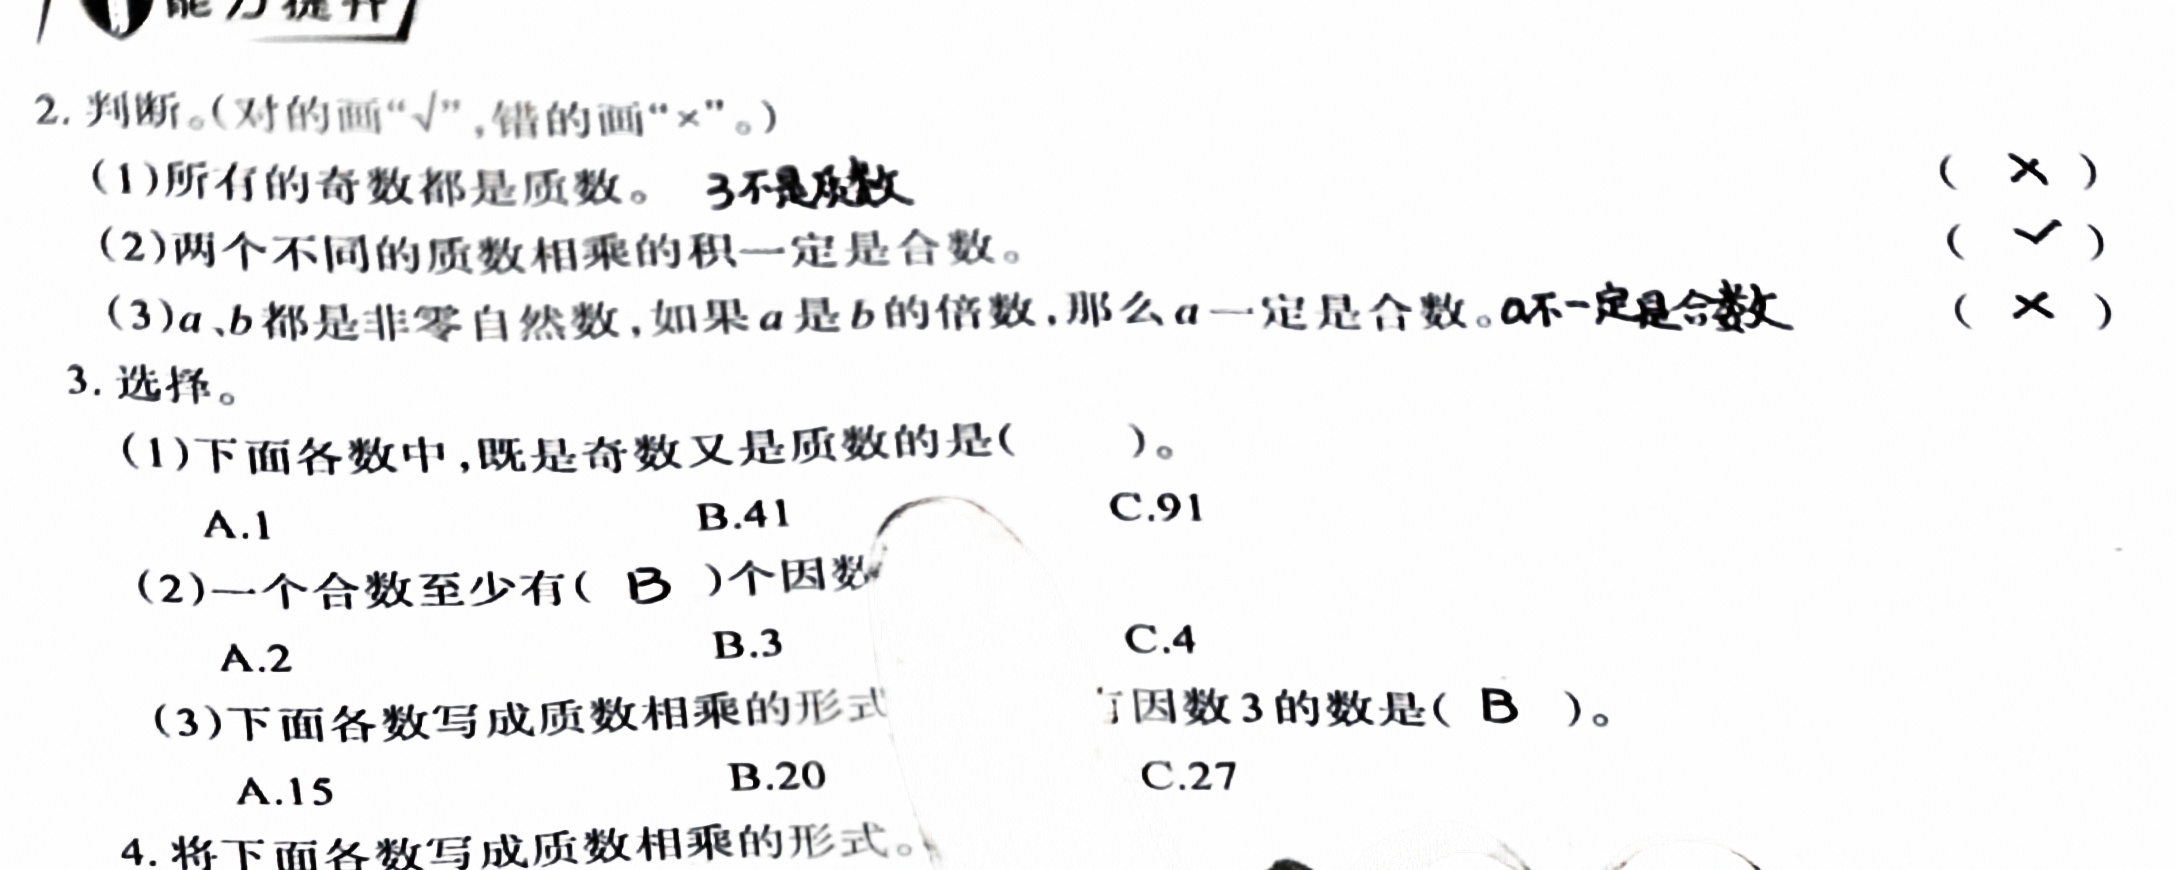 能力提升
2. 判断。(对的画“√”,错的画“×”。)
(1)所有的奇数都是质数。 3不是质数 ( × )
(2)两个不同的质数相乘的积一定是合数。 ( ✓ )
(3)a、b都是非零自然数,如果a是b的倍数,那么a一定是合数。a不一定是合数 ( × )
3. 选择。
(1)下面各数中,既是奇数又是质数的是( )。
A.1 B.41 C.91
(2)一个合数至少有( B )个因数
A.2 B.3 C.4
(3)下面各数写成质数相乘的形式 因数3的数是( B )。
A.15 B.20 C.27
4. 将下面各数写成质数相乘的形式。